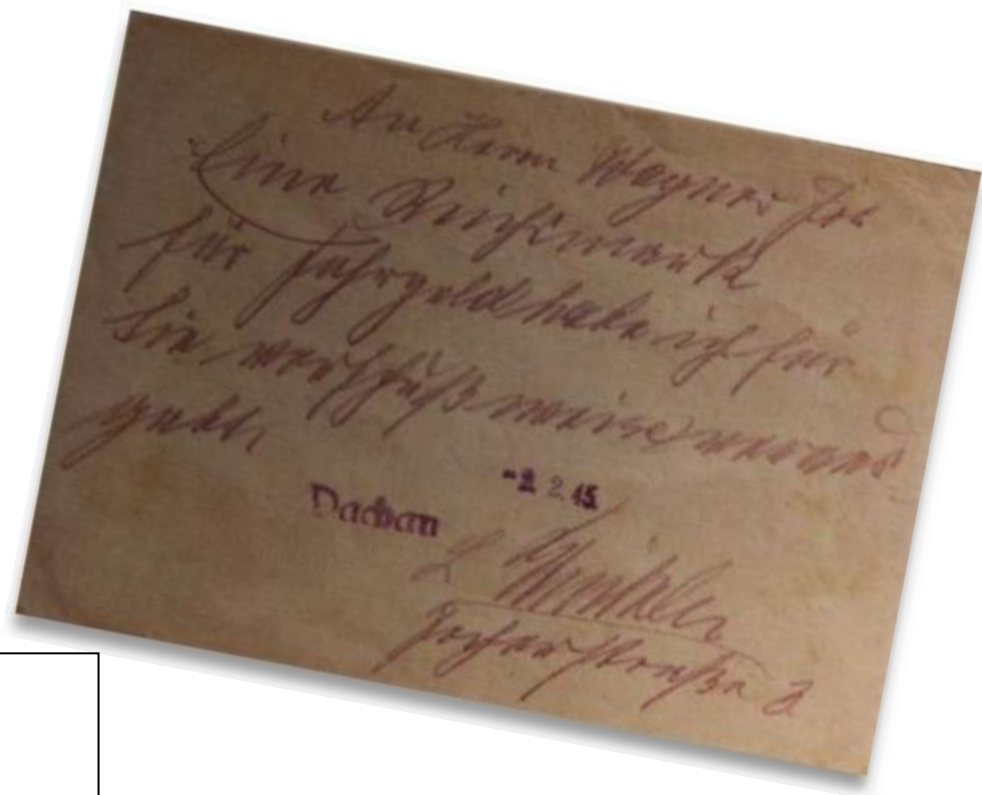 An Herrn Wagner Jos.
Eine Reichsmark
für Fahrgeld habe ich für
Sie vorschußweise veraus
gabt.
-2. 2. 45
Dachau
Winkler
straße 2